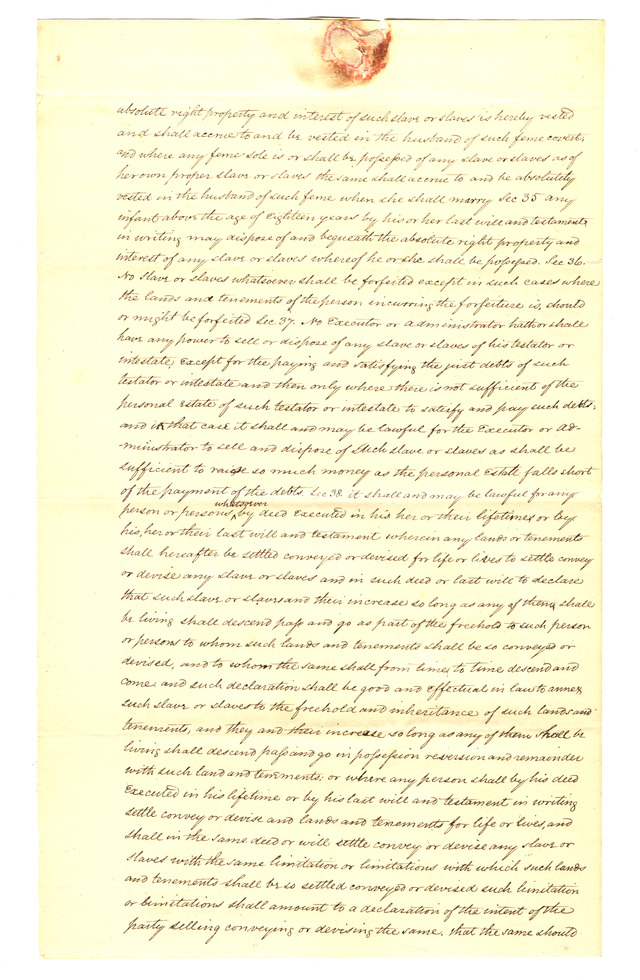 absolute right property and interest of such slave or slaves is hereby vested
and shall accrue to and be vested in the husband of such feme covert,
and where any feme sole is or shall be possessed of any slave or slaves as of
her own proper slave or slaves the same shall accrue to and be absolutely
vested in the husband of such feme when she shall marry Sec 35 any
infant above the age of Eighteen years by his or her last will and testament
in writing may dispose of and bequeath the absolute right property and
interest of any slave or slaves whereof he or she shall be possessed. Sec 36.
No Slave or slaves whatsoever shall be forfeited except in such cases where
the lands and tenements of the person incurring the forfeiture is, should
or might be forfeited Sec 37. No Executor or administrator hath or shall
have any power to sell or dispose of any slave or slaves of his testator or
intestate, Except for the paying and satisfying the just debts of such
testator or intestate and then only where there is not sufficient of the
personal Estate of such testator or intestate to satisfy and pay such debts,
and in that case it shall and may be lawful for the Executor or ad-
-ministrator to sell and dispose of such slave or slaves as shall be
sufficient to raise so much money as the personal Estate falls short
of the payment of the debts. Sec 38. it shall and may be lawful for any
person or persons whatsoever by deed Executed in his her or their lifetimes or by
his, her or their last will and testament wherein any lands or tenements
shall hereafter be settled conveyed or devised for life or lives to settle convey
or devise any slave or slaves and in such deed or last will to declare
that such slave or slaves and their increase so long as any of them shall
be living shall descend pass and go as part of the freehold to such person
or persons to whom such lands and tenements shall be so conveyed or
devised, and to whom the same shall from time to time descend and
come and such declaration shall be good and effectual in law to annex
such slave or slaves to the freehold and inheritance of such lands and
tenements, and they and their increase so long as any of them shall be
living shall descend pass and go in possession reversion and remainder
with such land and tenements. or where any person shall by his deed
Executed in his lifetime or by his last will and testament in writing
settle convey or devise and lands and tenements for life or lives, and
shall in the same deed or will settle convey or devise any slave or
slaves with the same limitation or limitations with which such lands
and tenements shall be so settled conveyed or devised such limitation
or limitations shall amount to a declaration of the intent of the
party selling conveying or devising the same. that the same should